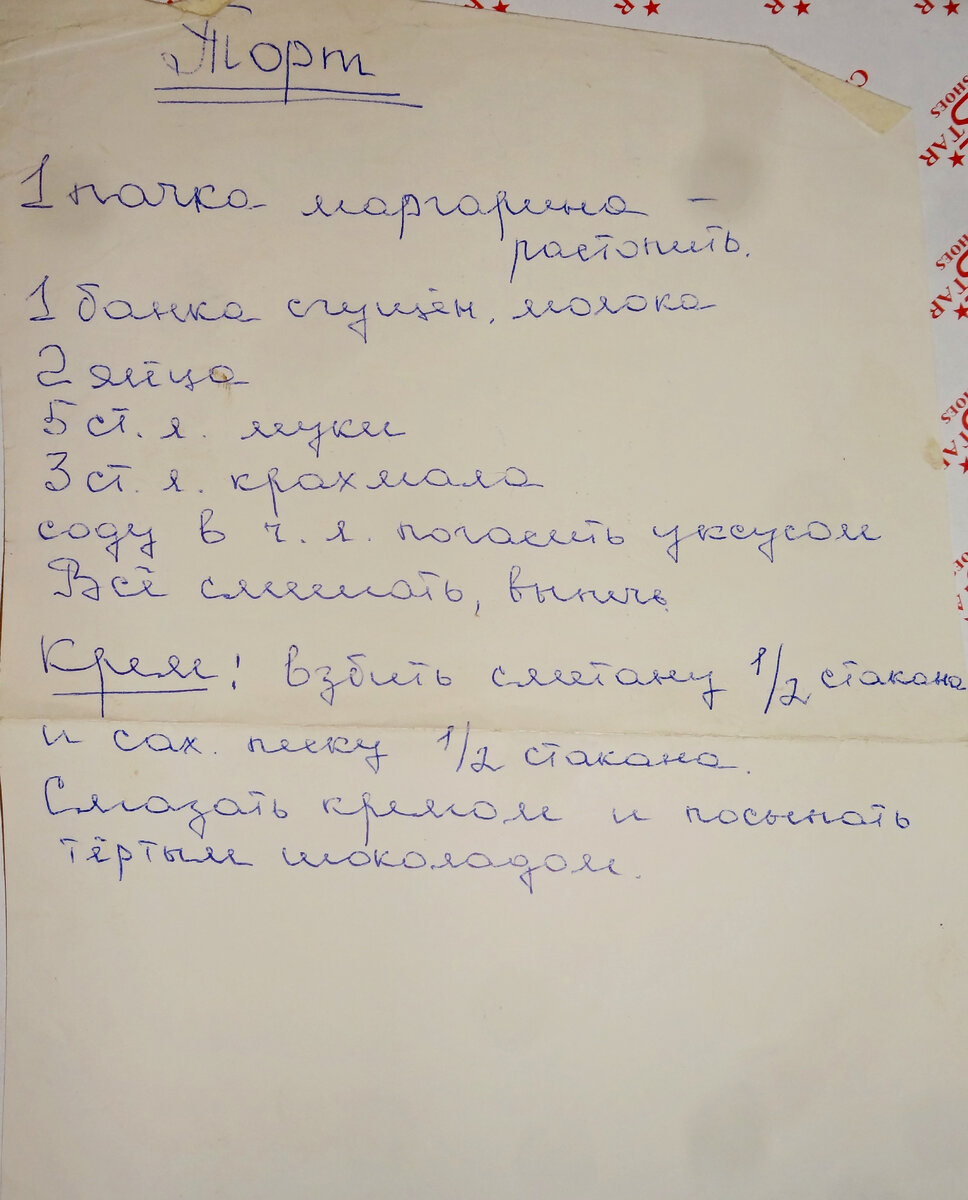 Торт
1 пачка маргарина –
растопить.
1 банка сгущён. молока
2 яйца
5 ст. л. муки
3 ст. л. крахмала
соду в ч. л. погасить уксусом
Всё смешать, выпечь.
Крем: взбить сметану 1/2 стакана
и сах. песку 1/2 стакана.
Смазать кремом и посыпать
тёртым шоколадом.
STAR
SHOES
STAR
SHOES
STAR
SHOES